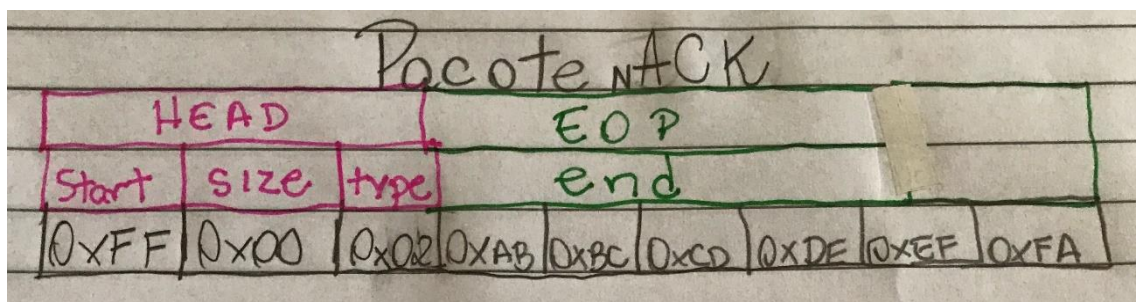 Pacote NACK
HEAD EOP
Start size type end
0xFF 0x00 0x02 0xAB 0xBC 0xCD 0xDE 0xEF 0xFA